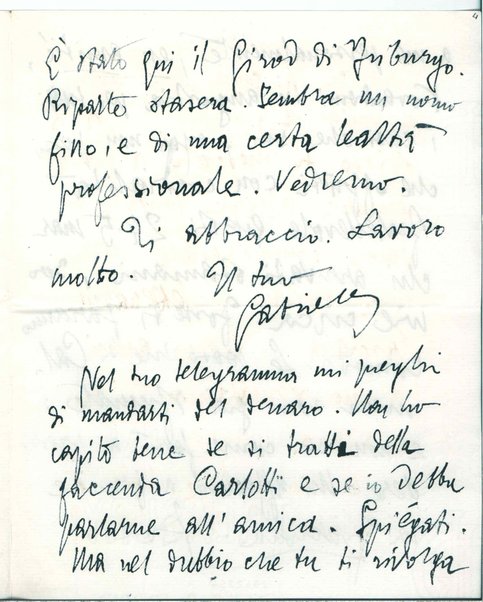 È stato qui il Girod di Friburgo.
Ripartò stasera. Sembra un uomo
fino, e di una certa lealtà
professionale. Vedremo.
Ti abbraccio. Lavoro
molto. Il tuo
Gabriele
Nel tuo telegramma mi preghi
di mandarti del denaro. Non ho
capito bene se si tratti della
faccenda Carlotti e se io debba
parlarne all'amica. Spiégati.
Ma nel dubbio che tu ti rivolga